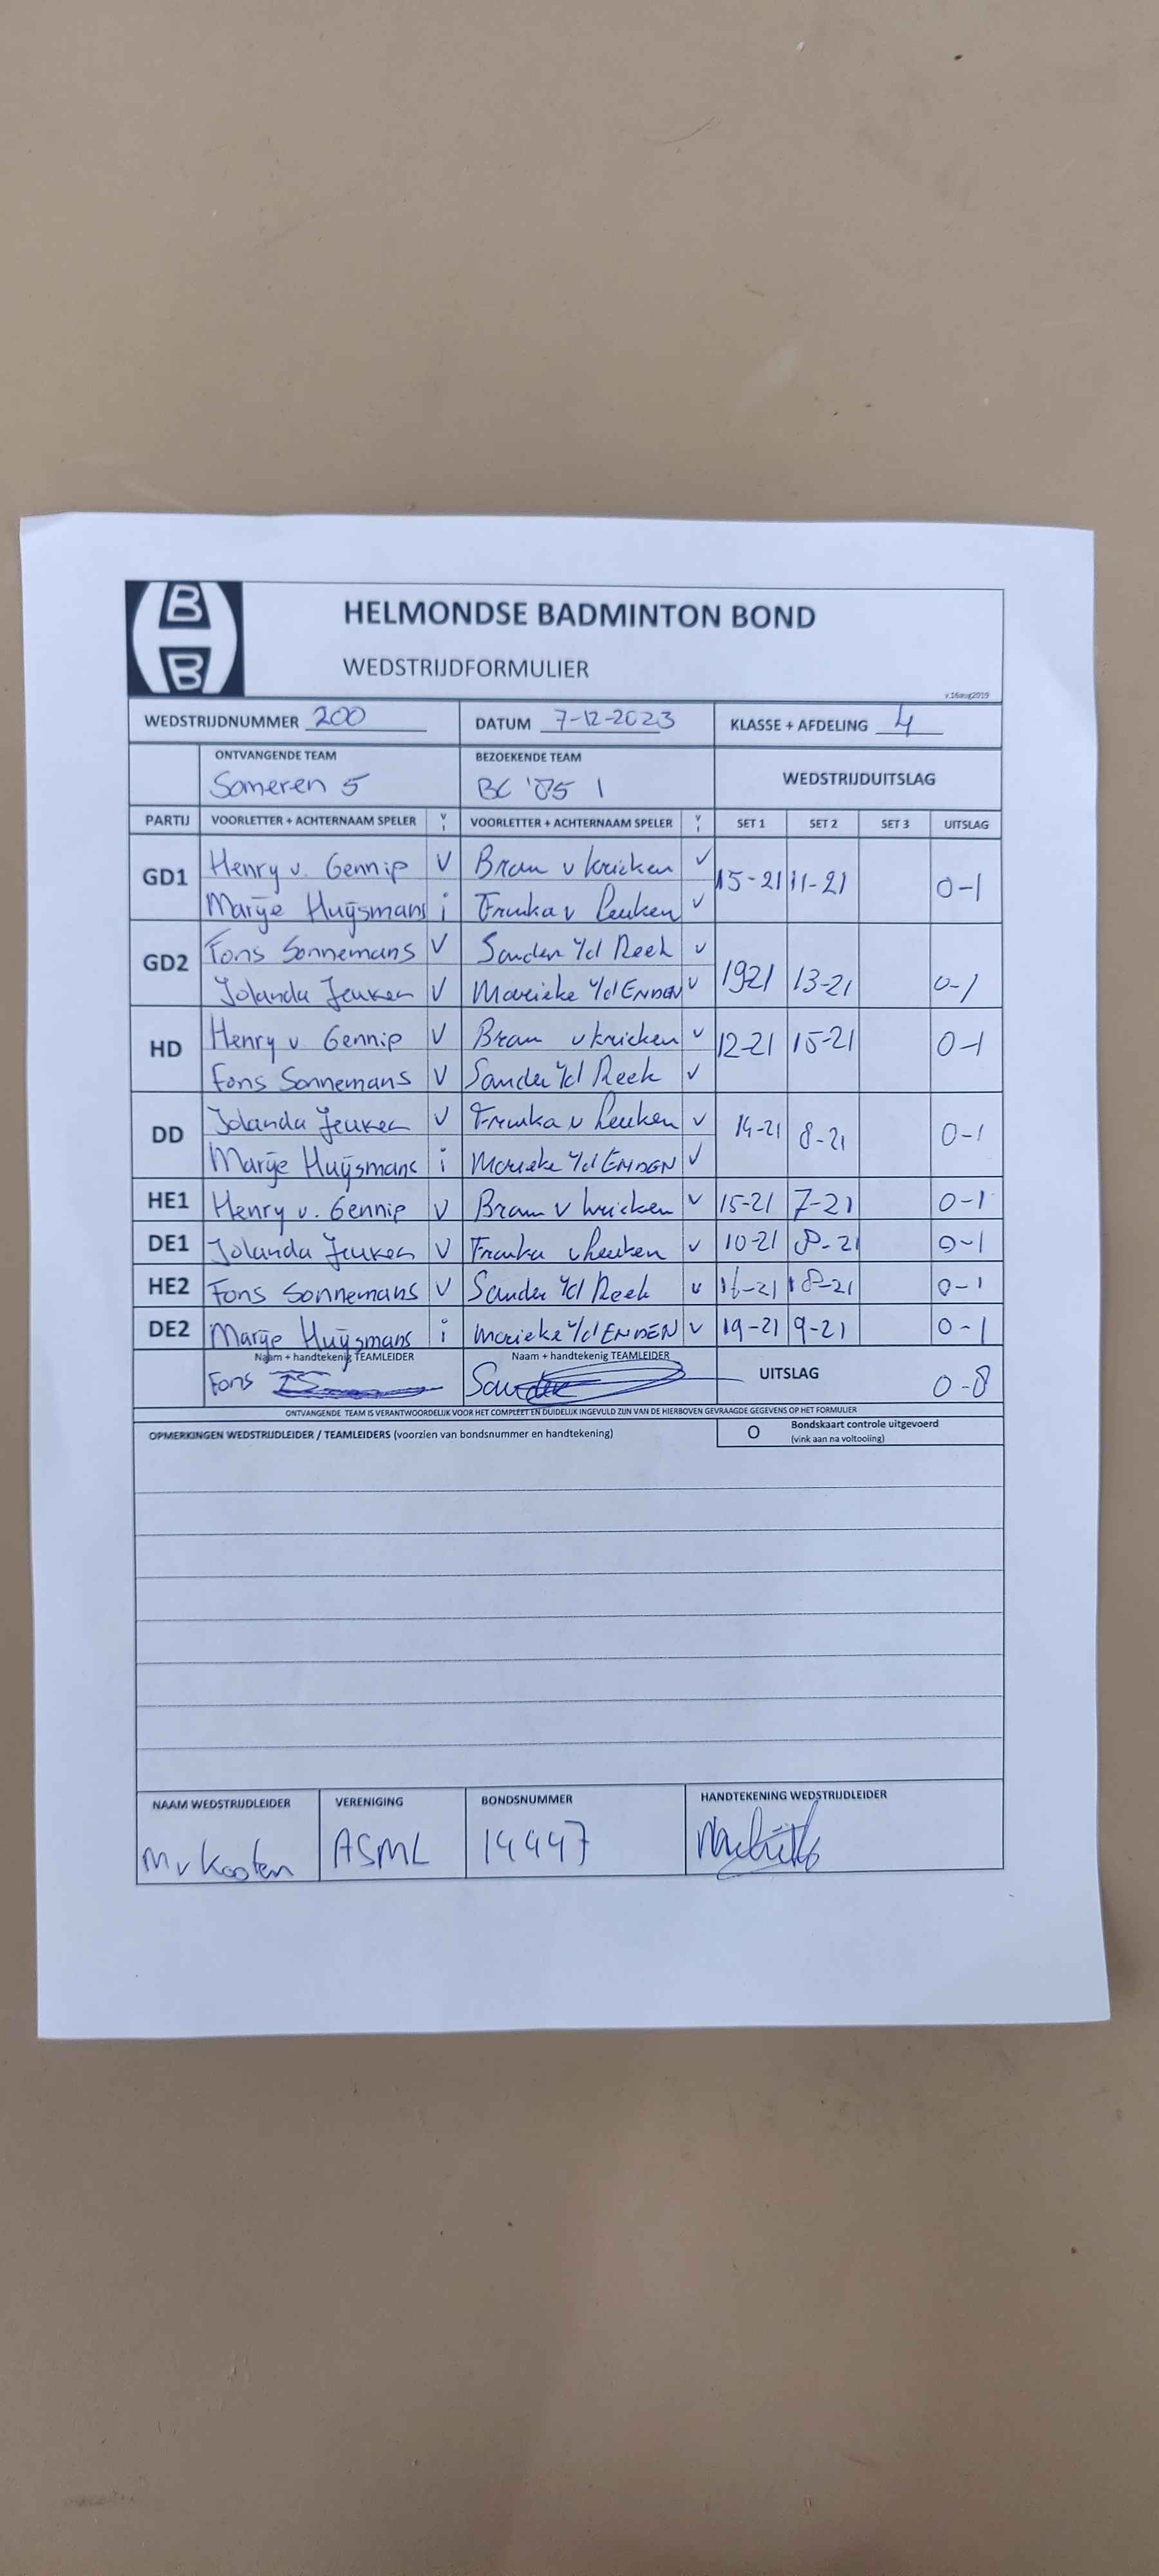 B
B
HELMONDSE BADMINTON BOND
WEDSTRIJDFORMULIER
v.16aug2019
WEDSTRIJDNUMMER 200 DATUM 7-12-2023 KLASSE + AFDELING 4
ONTVANGENDE TEAM BEZOEKENDE TEAM WEDSTRIJDUITSLAG
Someren 5 BC '85 1
PARTIJ VOORLETTER + ACHTERNAAM SPELER V I VOORLETTER + ACHTERNAAM SPELER V I SET 1 SET 2 SET 3 UITSLAG
GD1 Henry v. Gennip V Bram v kricken V 15-21 11-21 0-1
Marije Huijsmans i Franka v Leuken V
GD2 Fons Sonnemans V Sander v/d Reek V 1921 13-21 0-1
Jolanda Jeuken V Marieke v/d ENDEN V
HD Henry v Gennip V Bram v kricken V 12-21 15-21 0-1
Fons Sonnemans V Sander v/d Reek V
DD Jolanda Jeuken V Franka v Leuken V 14-21 8-21 0-1
Marije Huijsmans i Marieke v/d ENDEN V
HE1 Henry v. Gennip V Bram v kricken V 15-21 7-21 0-1
DE1 Jolanda Jeuken V Franka v Leuken V 10-21 8-21 0-1
HE2 Fons Sonnemans V Sander v/d Reek V 16-21 18-21 0-1
DE2 Marije Huijsmans i Marieke v/d ENDEN V 19-21 9-21 0-1
Naam + handtekenig TEAMLEIDER Naam + handtekenig TEAMLEIDER UITSLAG 0-8
Fons Sander
ONTVANGENDE TEAM IS VERANTWOORDELIJK VOOR HET COMPLEET EN DUIDELIJK INGEVULD ZIJN VAN DE HIERBOVEN GEVRAAGDE GEGEVENS OP HET FORMULIER
OPMERKINGEN WEDSTRIJDLEIDER / TEAMLEIDERS (voorzien van bondsnummer en handtekening) O Bondskaart controle uitgevoerd
(vink aan na voltooiing)
NAAM WEDSTRIJDLEIDER VERENIGING BONDSNUMMER HANDTEKENING WEDSTRIJDLEIDER
M v Kooten ASML 14447